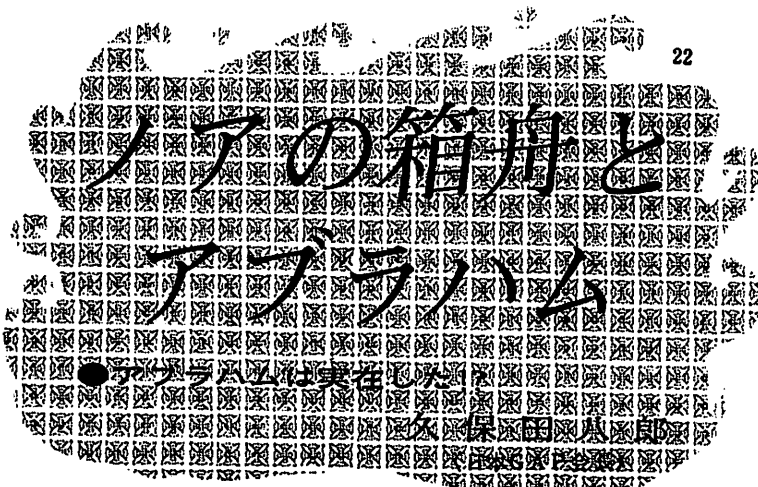 22
ノアの箱舟と
アブラハム
●アブラハムは実在した!?
久保田八郎
(日本GAP会長)